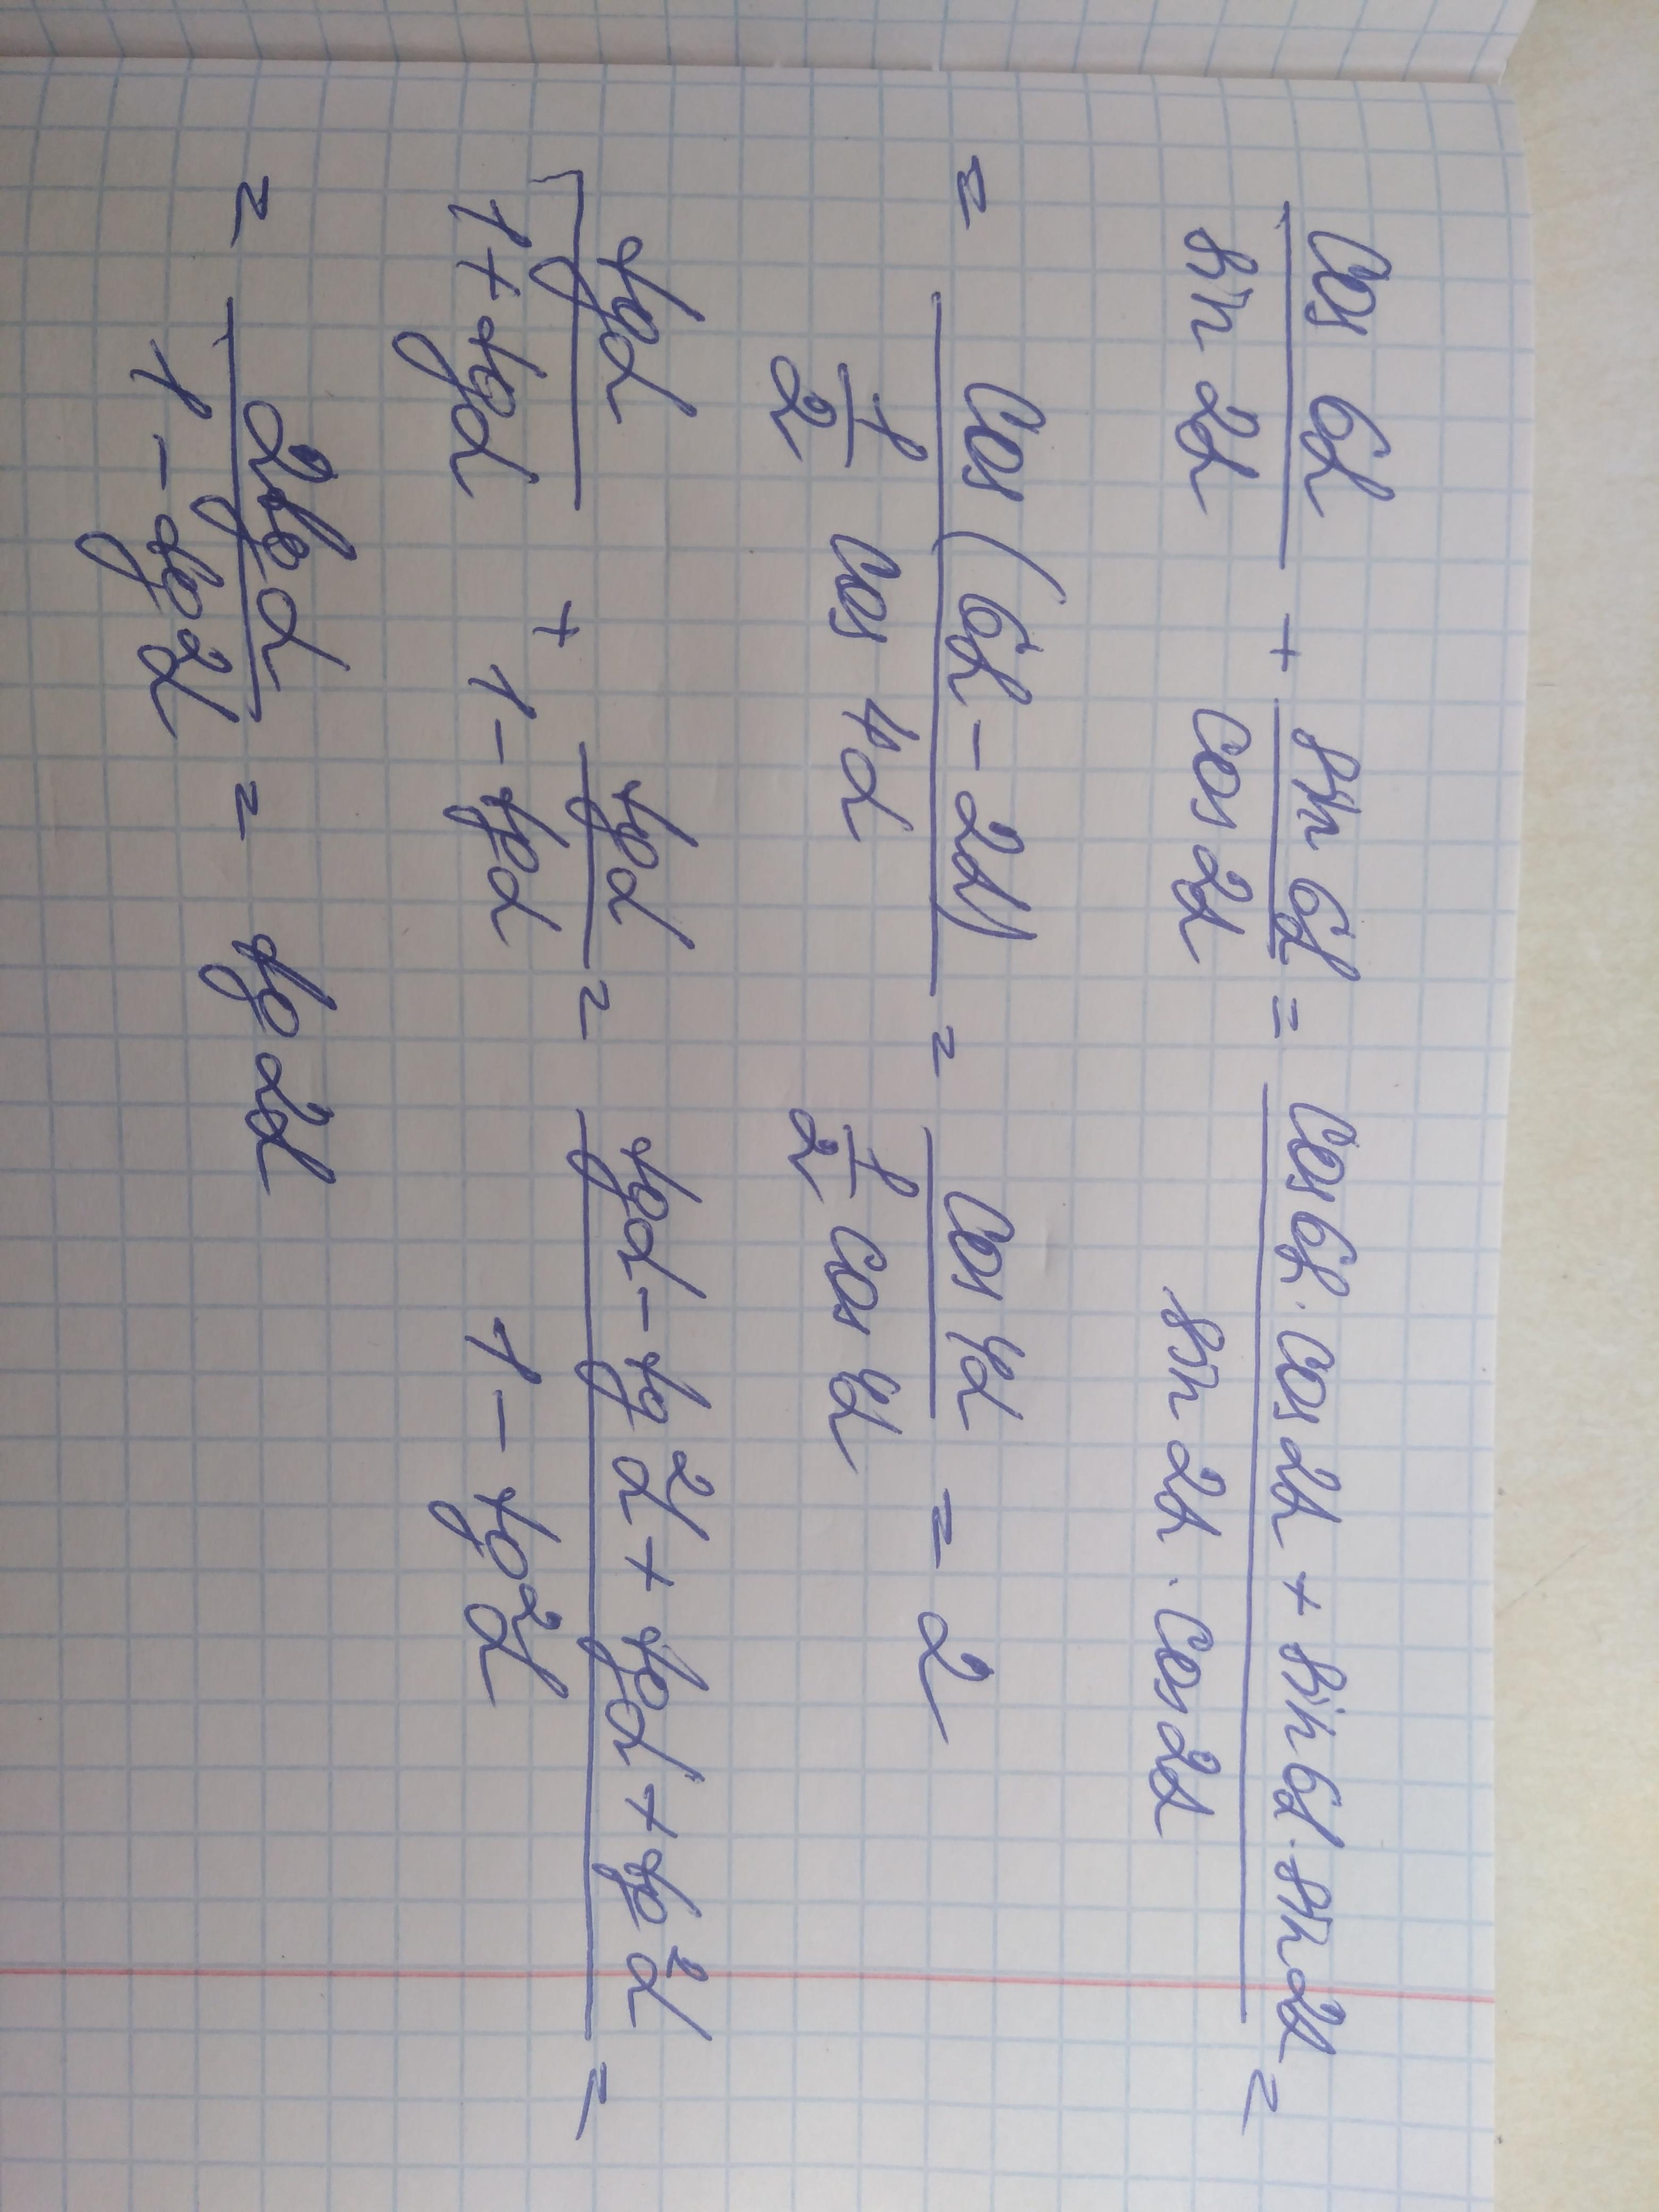 cos 6α / sin 2α + sin 6α / cos 2α = cos 6α · cos 2α + sin 6α · sin 2α / sin 2α · cos 2α =
= cos (6α − 2α) / 1/2 cos 4α = cos 4α / 1/2 cos 4α = 2
tgα / 1 + tgα + tgα / 1 − tgα = tgα − tg²α + tgα + tg²α / 1 − tg²α =
= 2tgα / 1 − tg²α = tg 2α